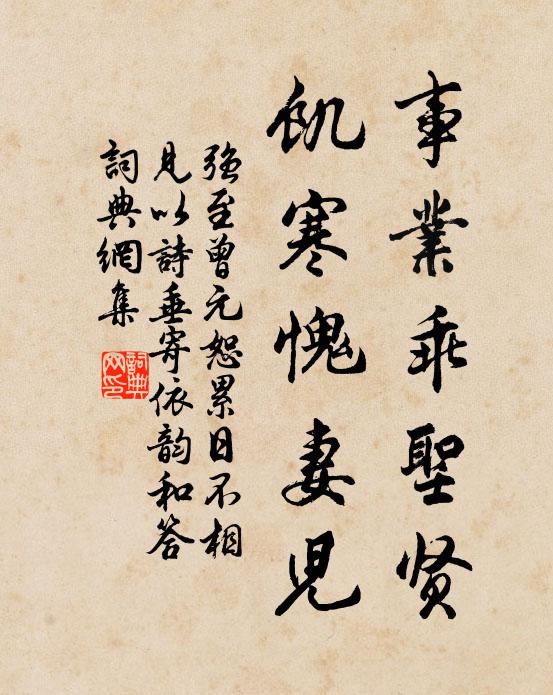 事業乖聖贤
飢寒愧妻児
強至曾元恕累日不相
見以詩垂寄依韵和答
詞典網集
詞典
网印